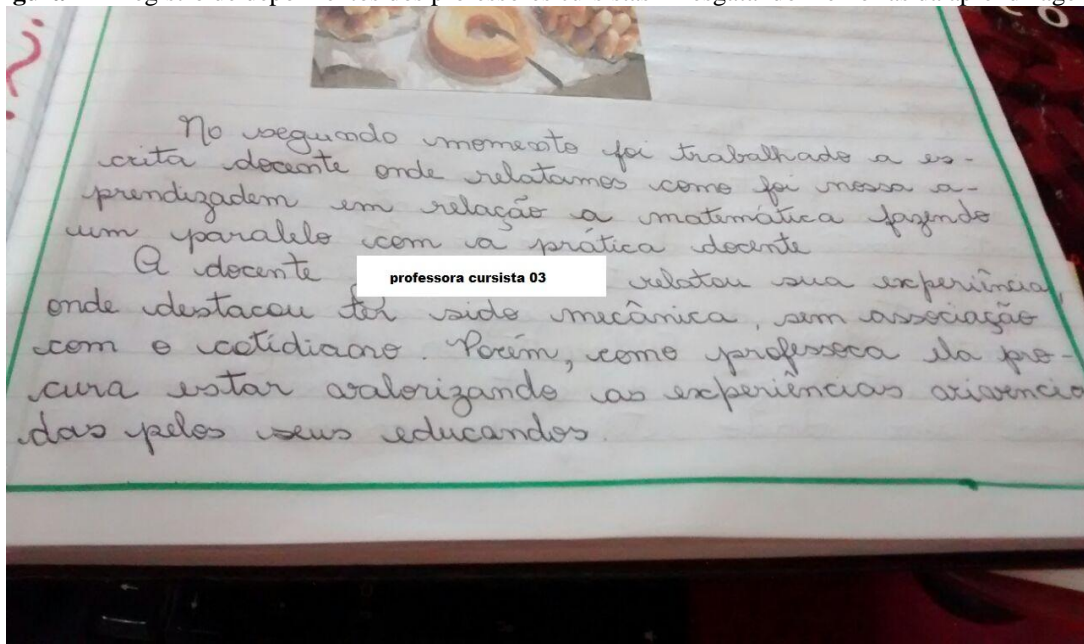 No segundo momento foi trabalhado a es-
crita docente onde relatamos como foi nossa a-
prendizadem em relação a matemática fazendo
um paralelo com a prática docente
A docente professora cursista 03 relatou sua experiência,
onde destacou ter sido mecânica, sem associação
com o cotidiano. Porém, como professora ela pro-
cura estar valorizando as experiências vivencia
das pelos seus educandos.